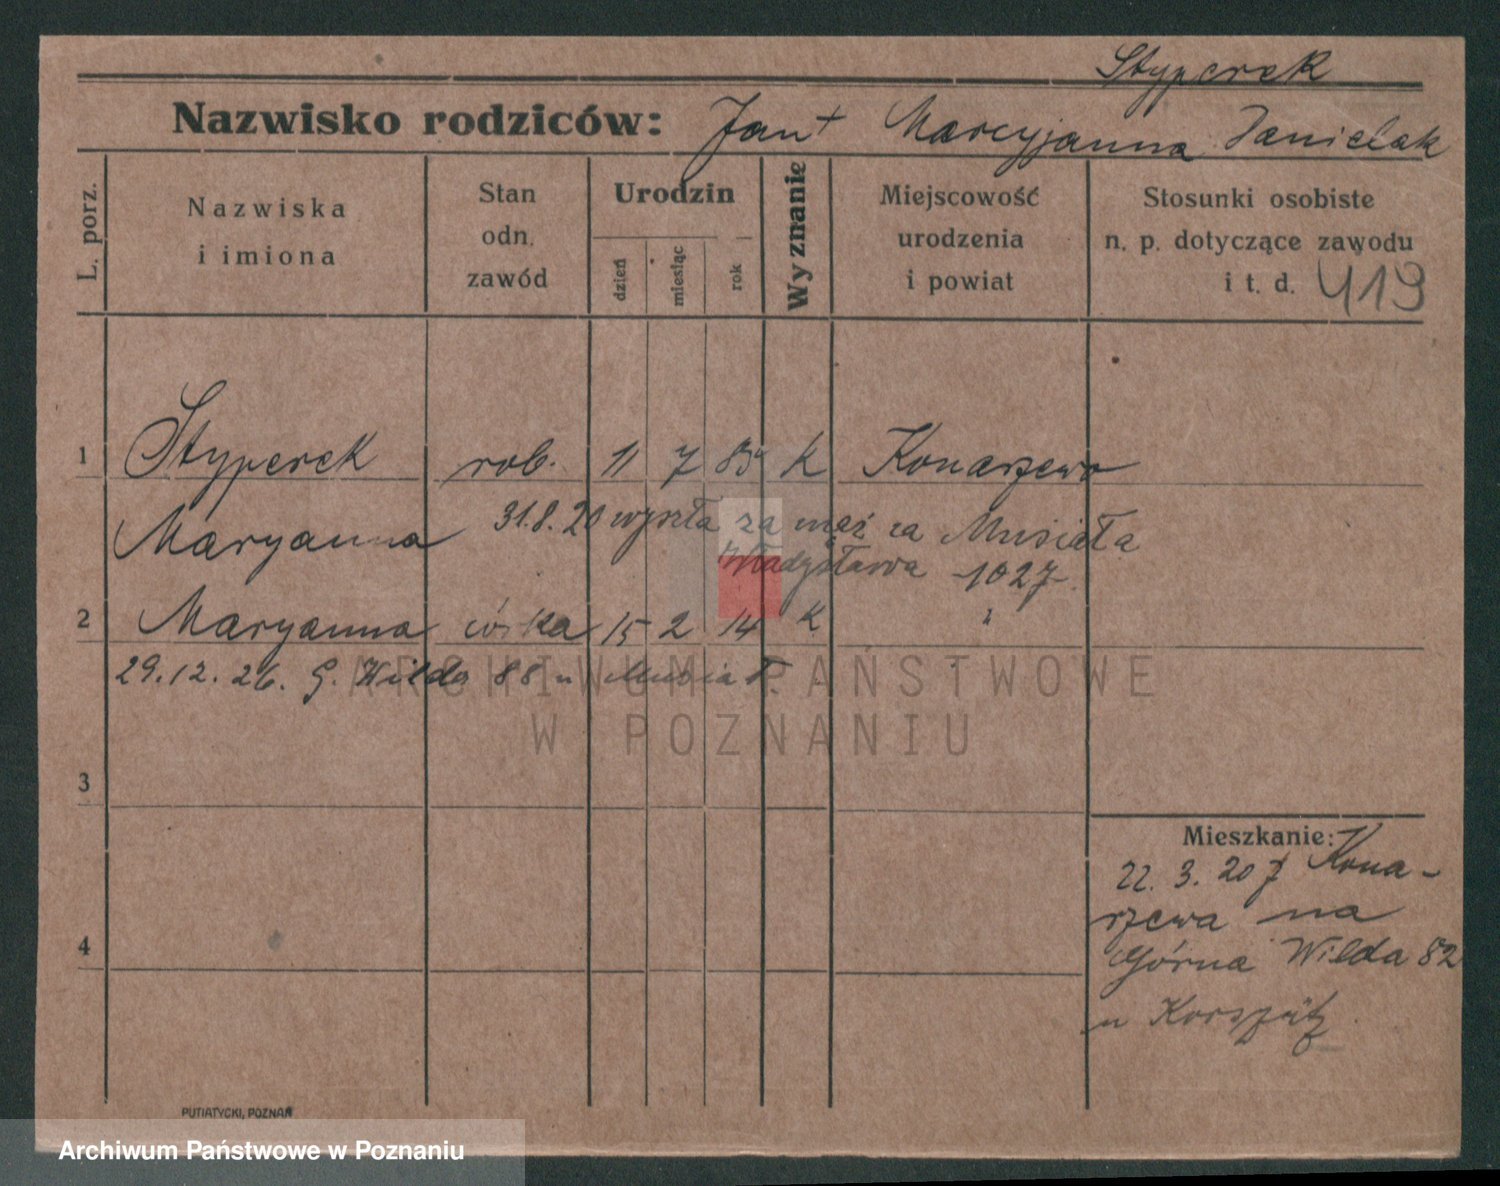 Styperek
Nazwisko rodziców: Jan + Marcyjanna Danielak
L. porz.
Nazwiska
i imiona
Stan
odn.
zawód
Urodzin
dzień
miesiąc
rok
Wyznanie
Miejscowość
urodzenia
i powiat
Stosunki osobiste
n. p. dotyczące zawodu
i t. d. 419
1 Styperek rob. 11 7 85 K Konarzewo
Maryanna 31.8.20 wyszła za mąż za Musiała
Władysława 1027
2 Maryanna córka 15 2 14 K "
29.12.26. G. Wilda 88 u Musiał.
3
4
Mieszkanie:
22. 3. 20 z Kona-
rzewa na
Górna Wilda 82
u
PUTIATYCKI, POZNAŃ
ARCHIWUM PAŃSTWOWE
W POZNANIU
Archiwum Państwowe w Poznaniu